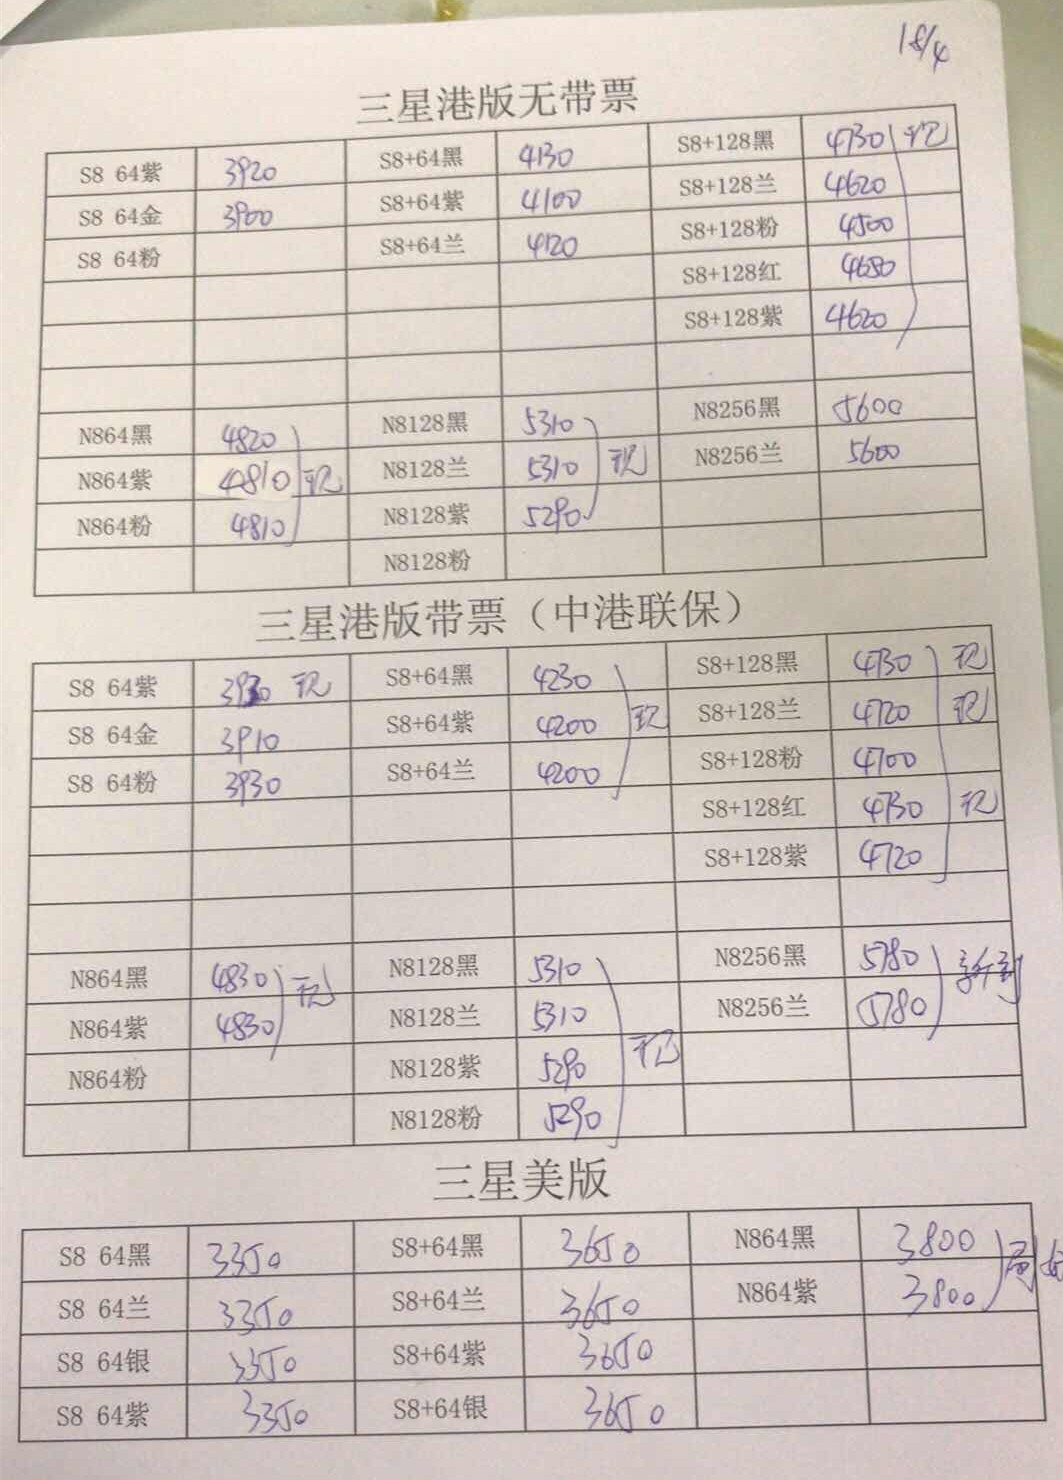 18/4
三星港版无带票
S8 64紫 3920 S8+64黑 4130 S8+128黑 4730 现
S8 64金 3900 S8+64紫 4100 S8+128兰 4620
S8 64粉 S8+64兰 4120 S8+128粉 4500
S8+128红 4680
S8+128紫 4620
N864黑 4820 N8128黑 5310 N8256黑 5600
N864紫 4810 现 N8128兰 5310 现 N8256兰 5600
N864粉 4810 N8128紫 5290
N8128粉
三星港版带票（中港联保）
S8 64紫 3930 现 S8+64黑 4230 S8+128黑 4730 现
S8 64金 3910 S8+64紫 4200 现 S8+128兰 4720 现
S8 64粉 3930 S8+64兰 4200 S8+128粉 4700
S8+128红 4730 现
S8+128紫 4720
N864黑 4830 现 N8128黑 5310 N8256黑 5780 新到
N864紫 4830 N8128兰 5310 N8256兰 5780
N864粉 N8128紫 5290 现
N8128粉 5290
三星美版
S8 64黑 3350 S8+64黑 3650 N864黑 3800
S8 64兰 3350 S8+64兰 3650 N864紫 3800
S8 64银 3350 S8+64紫 3650
S8 64紫 3350 S8+64银 3650